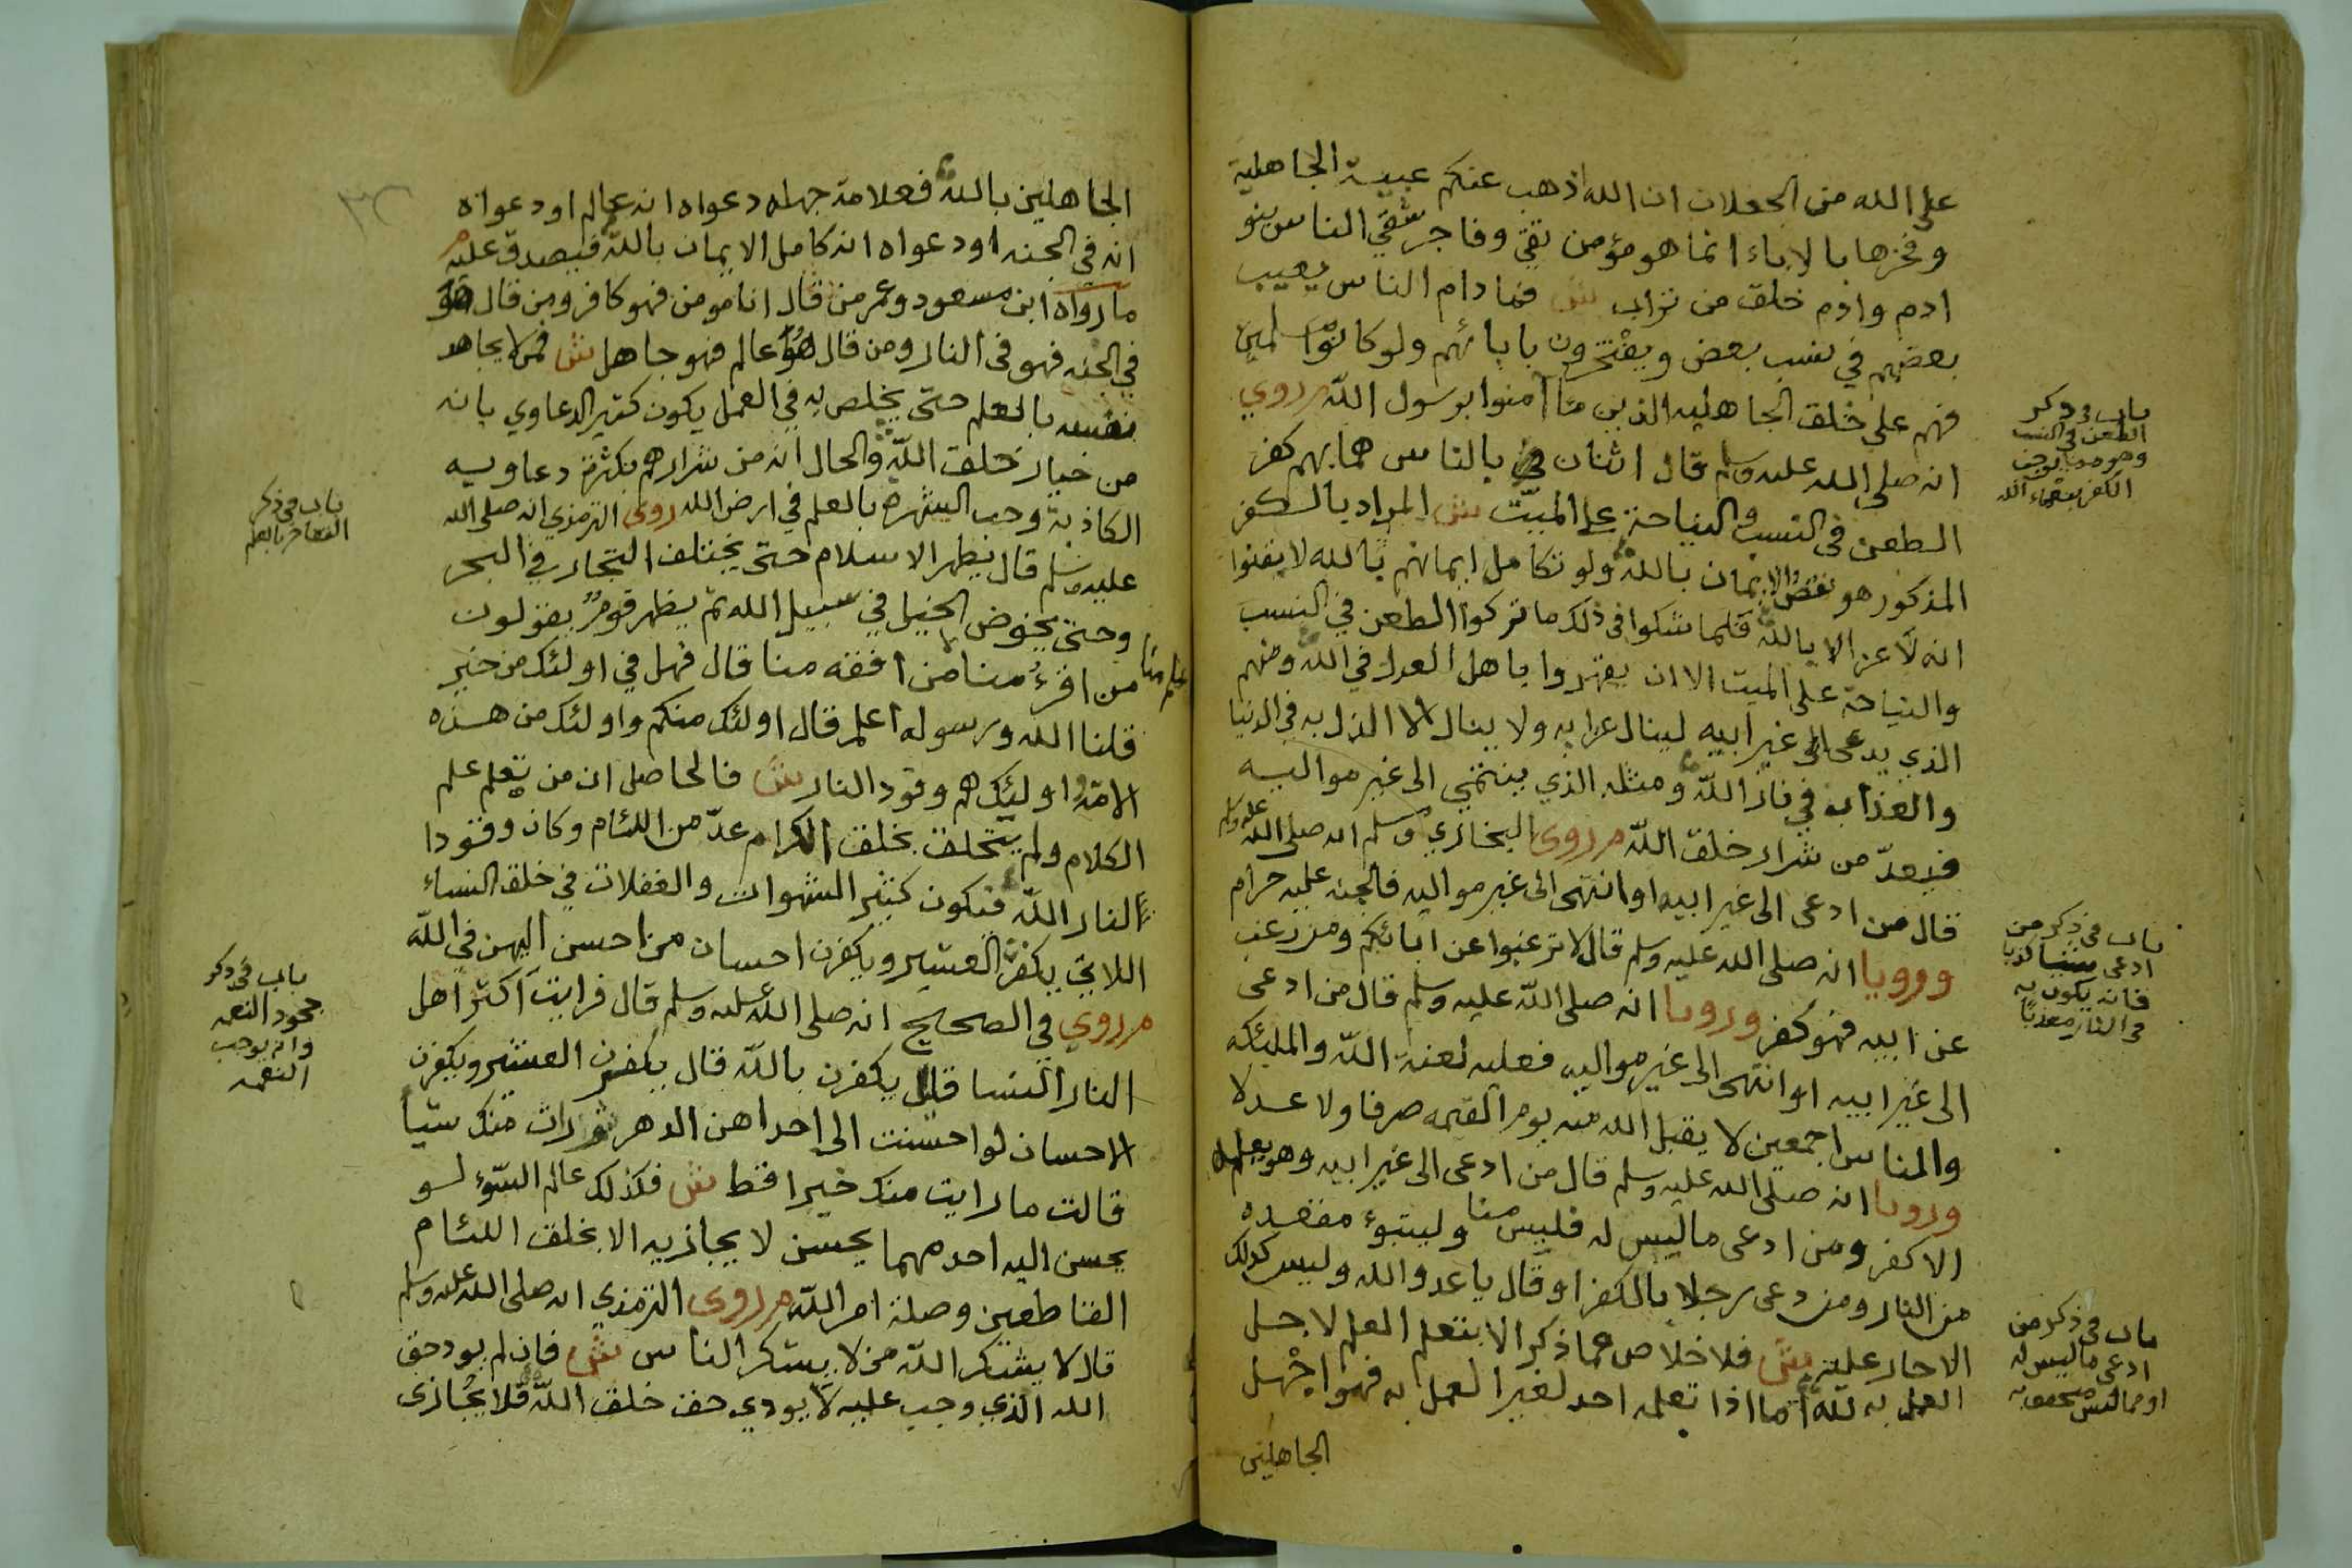 على الله من الجعلان ان الله اذهب عنكم عبية الجاهلية
وفخرها بالاباء انما هو مؤمن تقي وفاجر شقي الناس بنو
ادم وادم خلق من تراب ش فما دام الناس يعيب
بعضهم في نسب بعض ويفتخرون بابائهم ولو كانوا مسلمين
فهم على خلق الجاهليه الذين ما امنوا برسول الله م روي
انه صلى الله عليه وسلم قال اثنان في بالناس هما بهم كفر
الطعن في النسب والنياحة على الميت ش المراد بالكفر
المذكور هو نقص الايمان بالله ولو تكامل ايمانهم بالله لايقنوا
انه لا عز الا بالله فلما شكوا في ذلك ما تركوا الطعن في النسب
والنياحة على الميت الا ان يقتدوا باهل العدل في الله ومنهم
الذي يدعى الى غير ابيه لينال عزا به ولا ينال الا الذل به في الدنيا
والعذاب في نار الله ومثله الذي ينتمي الى غير مواليه
فيعد من شرار خلق الله م روى البخاري ومسلم انه صلى الله عليه وسلم
قال من ادعى الى غير ابيه او انتهى الى غير مواليه فالجنه عليه حرام
ورويا انه صلى الله عليه وسلم قال لا ترغبوا عن ابائكم ومن رغب
عن ابيه فهو كفر ورويا انه صلى الله عليه وسلم قال من ادعى
الى غير ابيه او انتهى الى غير مواليه فعليه لعنة الله والملئكه
والناس اجمعين لا يقبل الله منه يوم القيمه صرفا ولا عدلا
ورويا انه صلى الله عليه وسلم قال من ادعى الى غير ابيه وهو يعلمه
الا كفر ومن ادعى ما ليس له فليس منا وليتبوء مقعده
من النار ومن دعى رجلا بالكفر او قال يا عدو الله وليس كذلك
الا حار عليه ش فلا خلاص عما ذكر الا بتعلم العلم لاجل
العمل به لله اما اذا تعلمه احد لغير العمل به فهو اجهل
الجاهلين
باب في ذكر
الطعن في النسب
وهو مما يوجب
الكفر بنعماء الله
باب في ذكر من
ادعى نسبا كذبا
فانه يكون به
في النار معذبا
باب في ذكر من
ادعى ما ليس له
الجاهلين بالله فعلامة جهله دعواه انه عالم او دعواه
انه في الجنه او دعواه انه كامل الايمان بالله فيصدق عليه م
ما رواه ابن مسعود وعمر من قال انا مومن فهو كافر ومن قال هو
في الجنه فهو في النار ومن قال هو عالم فهو جاهل ش فمن لا يجاهد
نفسه بالعلم حتى يخلص به في العمل يكون كثير الدعاوي بانه
من خيار خلق الله والحال انه من شرارهم بكثرة دعاويه
الكاذبة وحب الشهرة بالعلم في ارض الله روى الترمذي انه صلى الله
عليه وسلم قال يظهر الاسلام حتى يختلف التجار في البحر
وحتى يخوض الخيل في سبيل الله ثم يظهر قوم يقولون
من اقرء منا من افقه منا قال فهل في اولئك من خير
قلنا الله ورسوله اعلم قال اولئك منكم واولئك من هذه
الامة واولئك هم وقود النار ش فالحاصل ان من تعلم علم
الكلام ولم يتخلق بخلق الكرام عد من اللئام وكان وقودا
لنار الله فيكون كثير الشهوات والغفلات في خلق النساء
اللاتي يكفرن العشير ويكفرن احسان من احسن اليهن في الله
م روي في الصحيح انه صلى الله عليه وسلم قال فرايت اكثر اهل
النار النسا قيل يكفرن بالله قال يكفرن العشير ويكفرن
الاحسان لو احسنت الى احداهن الدهر ثم رات منك شيا
قالت ما رايت منك خيرا قط ش فكذلك عالم السوء لو
يحسن اليه احد مهما يحسن لا يجازيه الا بخلق اللئام
القاطعين وصلة امر الله م روى الترمذي انه صلى الله عليه وسلم
قال لا يشكر الله من لا يشكر الناس ش فان لم يود حق
الله الذي وجب عليه لا يودي حق خلق الله فلا يجازى
باب في ذكر
التفاخر بالعلم
باب في ذكر
جحود النعمه
وانه يوجب
النقمه